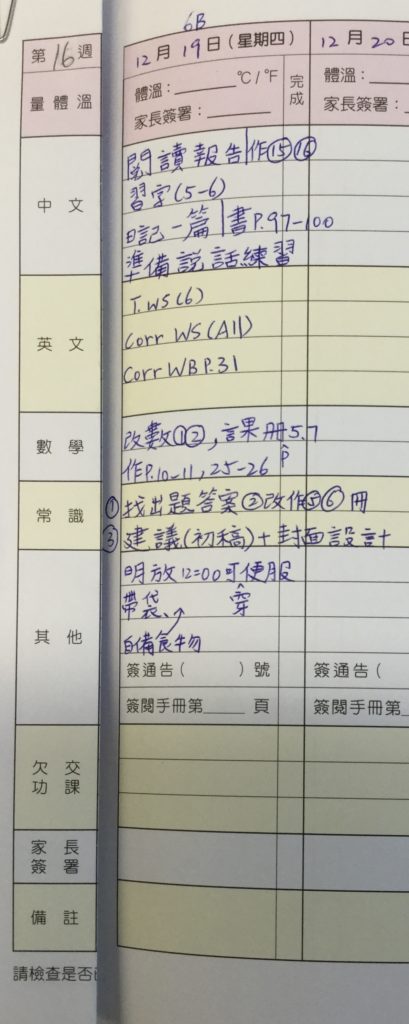 6B
第16週
12月19日(星期四)
12月20日
量體溫
體溫：______℃/°F
家長簽署：______
完成
體溫：
家長簽署：
中文
閱讀報告|作⑮⑯
習字(5-6)
日記一篇|書P.97-100
準備說話練習
英文
T.WS(6)
Corr WS(All)
Corr WB P.31
數學
改數①②,課冊P5.7
作P.10-11,25-26
常識
①找出題答案②改作⑤⑥冊
③建議(初稿)+封面設計
其他
明放12=00可穿便服
帶袋、
自備食物
簽通告( )號
簽通告(
簽閱手冊第____頁
簽閱手冊第____
欠交功課
家長簽署
備註
請檢查是否